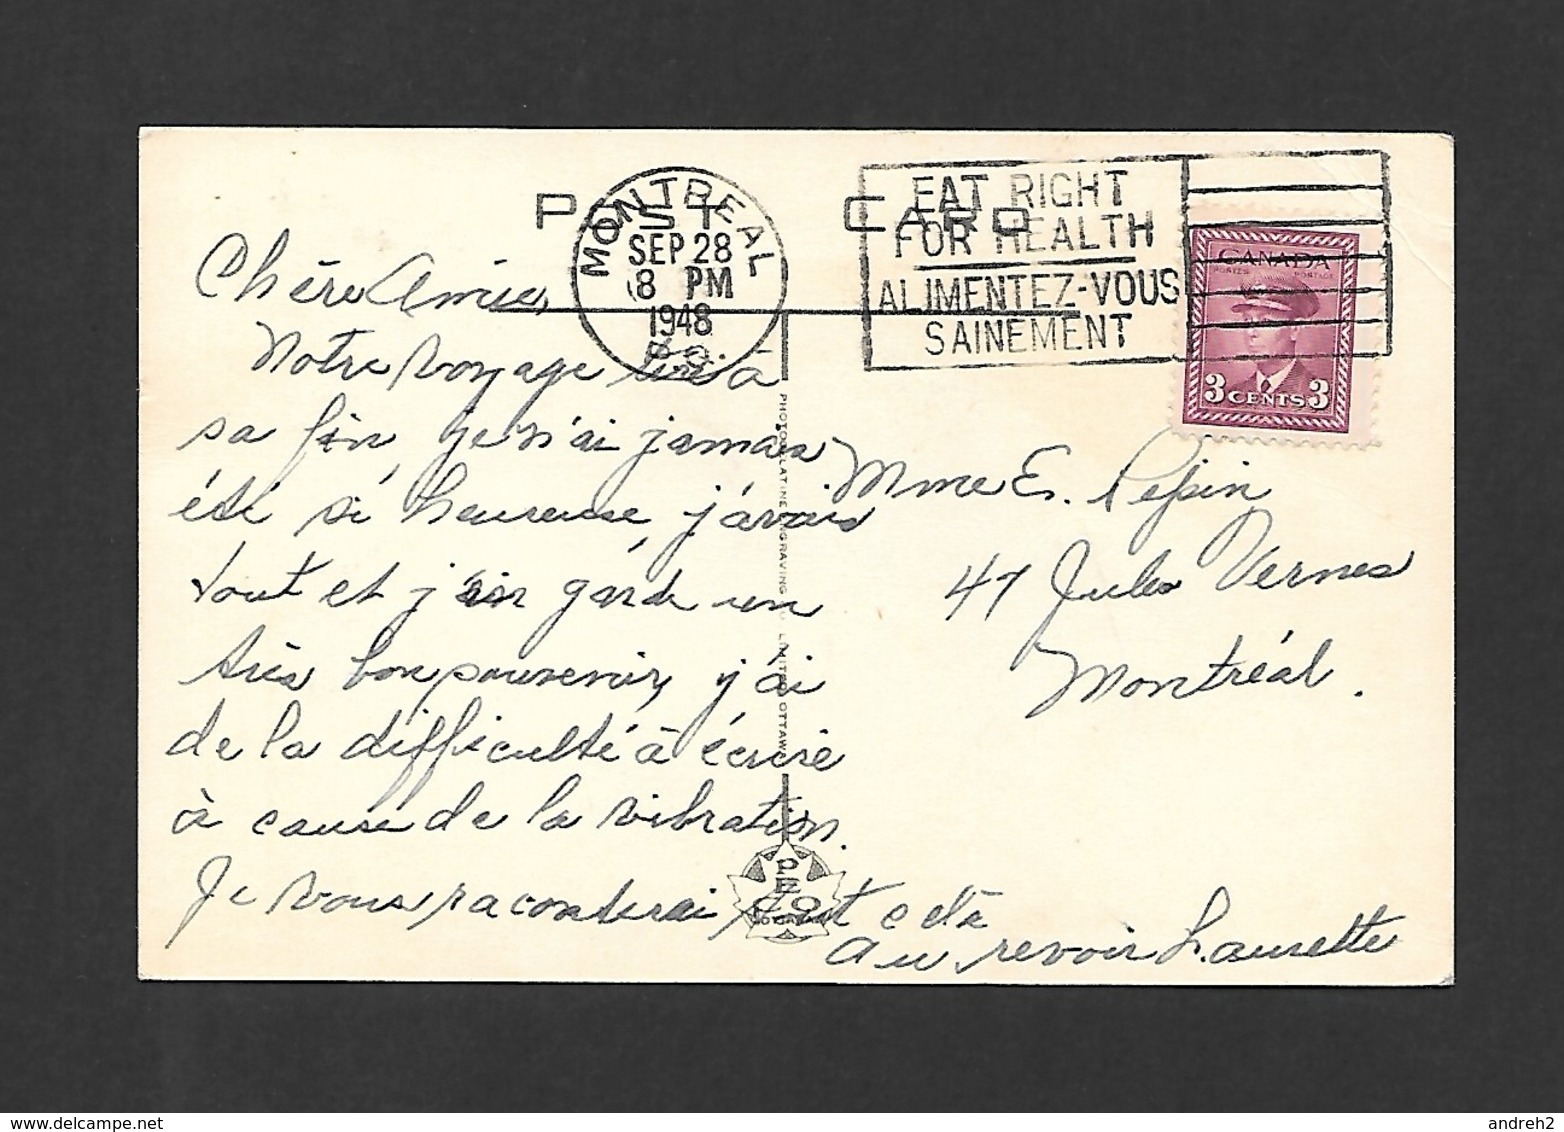 POST CARD
MONTREAL
SEP 28
8 PM
1948
P.Q.
EAT RIGHT
FOR HEALTH
ALIMENTEZ-VOUS
SAINEMENT
CANADA
POSTES POSTAGE
3 CENTS 3
Chère Amie,
Notre voyage tire à
sa fin, je n'ai jamais
été si heureuse, j'avais
tout et j'en garde un
très bon souvenir, j'ai
de la difficulté à écrire
à cause de la vibration.
Je vous raconterai tout celà
au revoir Laurette
Mme E. Pepin
47 Jules Vernes
Montréal.
PHOTOGELATINE ENGRAVING CO LIMITED OTTAWA
PECO
andreh2